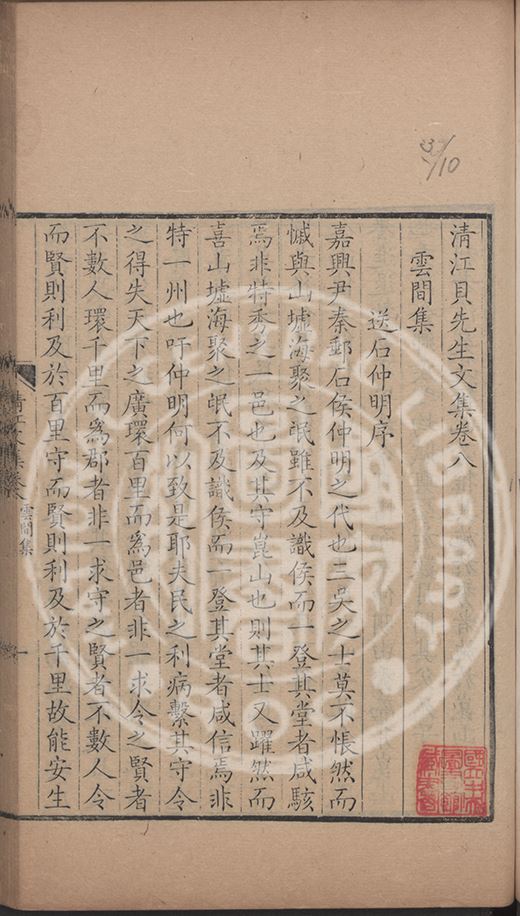 清江貝先生文集卷八
雲間集
送石仲明序
嘉興尹秦郵石侯仲明之代也三吳之士莫不悵然而
慽與山墟海聚之氓雖不及識侯而一登其堂者咸駭
焉非特秀之一邑也及其守崑山也則其士又躍然而
喜山墟海聚之氓不及識侯而一登其堂者咸信焉非
特一州也吁仲明何以致是耶夫民之利病繫其守令
之得失天下之廣環百里而爲邑者非一求令之賢者
不數人環千里而爲郡者非一求守之賢者不數人令
而賢則利及於百里守而賢則利及於千里故能安生
清江文集卷 雲間集
37/10